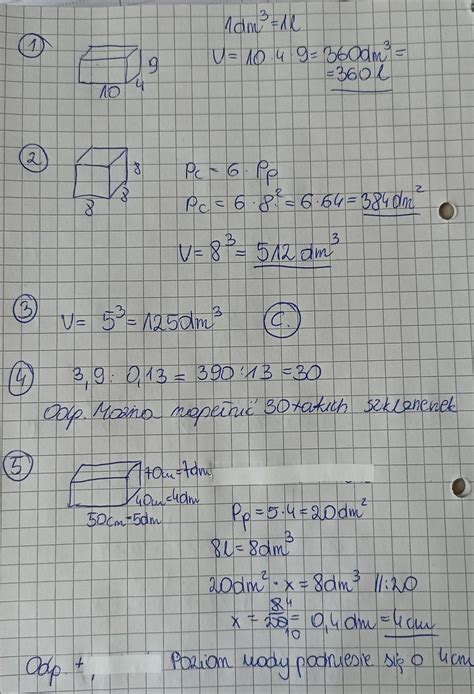 1dm³=1l
① 9 10 4 V = 10·4·9=360dm³=
=360l
② 8 8 8 Pc = 6 · Pp
Pc = 6 · 8² = 6·64=384dm²
V=8³=512dm³
③ V= 5³=125dm³ C.
④ 3,9 : 0,13 = 390:13=30
Odp. Można napełnić 30 takich szklanek
⑤ 70cm=7dm
40cm=4dm
50cm=5dm
Pp=5·4=20dm²
8l=8dm³
20dm²·x=8dm³ //:20
x = 8/20 = 4/10 = 0,4dm=4cm
Odp. Poziom wody podniesie się o 4cm